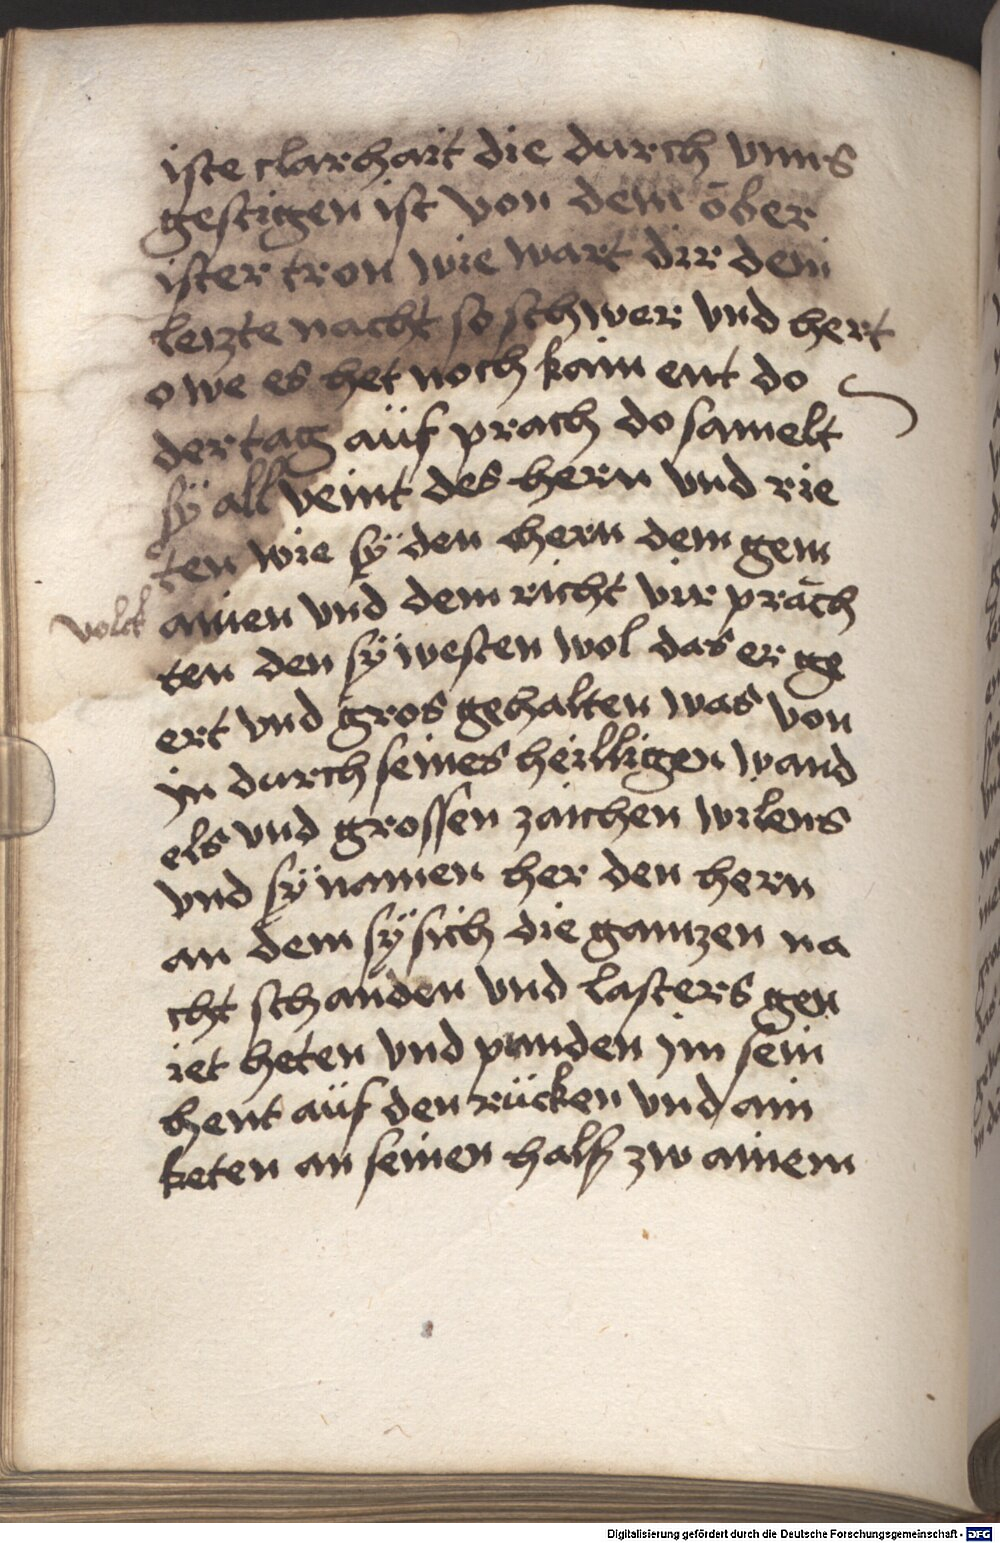 iste clarhait die durch vnns
gestigen ist von dem öber
ister tron wie wart dir dein
letzte nacht so schwer vnd hert
o we es het noch kain ent do
der tag aüf prach do samelt
sÿ all veint des hern vnd rie
ten wie sÿ den hern dem gem
volck
ainen vnd dem richt vir präch
ten den sÿ westen wol das er ge
ert vnd gros gehalten was von
in durch seines heilligen wand
els vnd grossen zaichen wilens
vnd sÿ namen her den hern
an dem sÿ sich die gantzen na
cht schanden vnd lasters gen
iet heten vnd punden im sein
hent aüf den rücken vnd ain
keten an seinen hals zw ainem
Digitalisierung gefördert durch die Deutsche Forschungsgemeinschaft - DFG